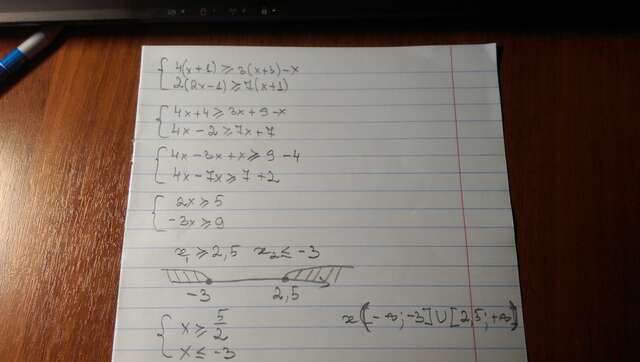 { 4(x+1) ⩾ 3(x+3)-x
2(2x-1) ⩾ 7(x+1)
{ 4x+4 ⩾ 3x+9-x
4x-2 ⩾ 7x+7
{ 4x-3x+x ⩾ 9-4
4x-7x ⩾ 7+2
{ 2x ⩾ 5
-3x ⩾ 9
x₁ ⩾ 2,5 x₂ ⩽ -3
-3 2,5
{ x ⩾ 5/2
x ⩽ -3
x (-∞; -3] ∪ [2,5; +∞)